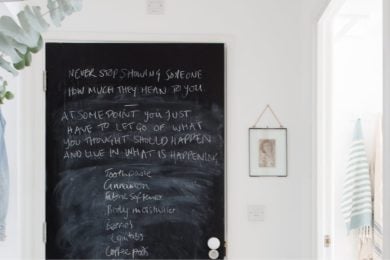 NEVER STOP SHOWING SOMEONE
HOW MUCH THEY MEAN TO YOU
AT SOME POINT YOU JUST
HAVE TO LET GO OF WHAT
YOU THOUGHT SHOULD HAPPEN
AND LIVE IN WHAT IS HAPPENING
Toothpaste
Cinnamon
Fabric Softener
Body moisturiser
Berries
Coffee pods